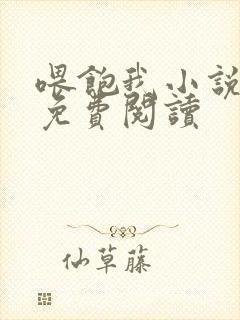 喂飽我小說
免費閱讀
仙草藤